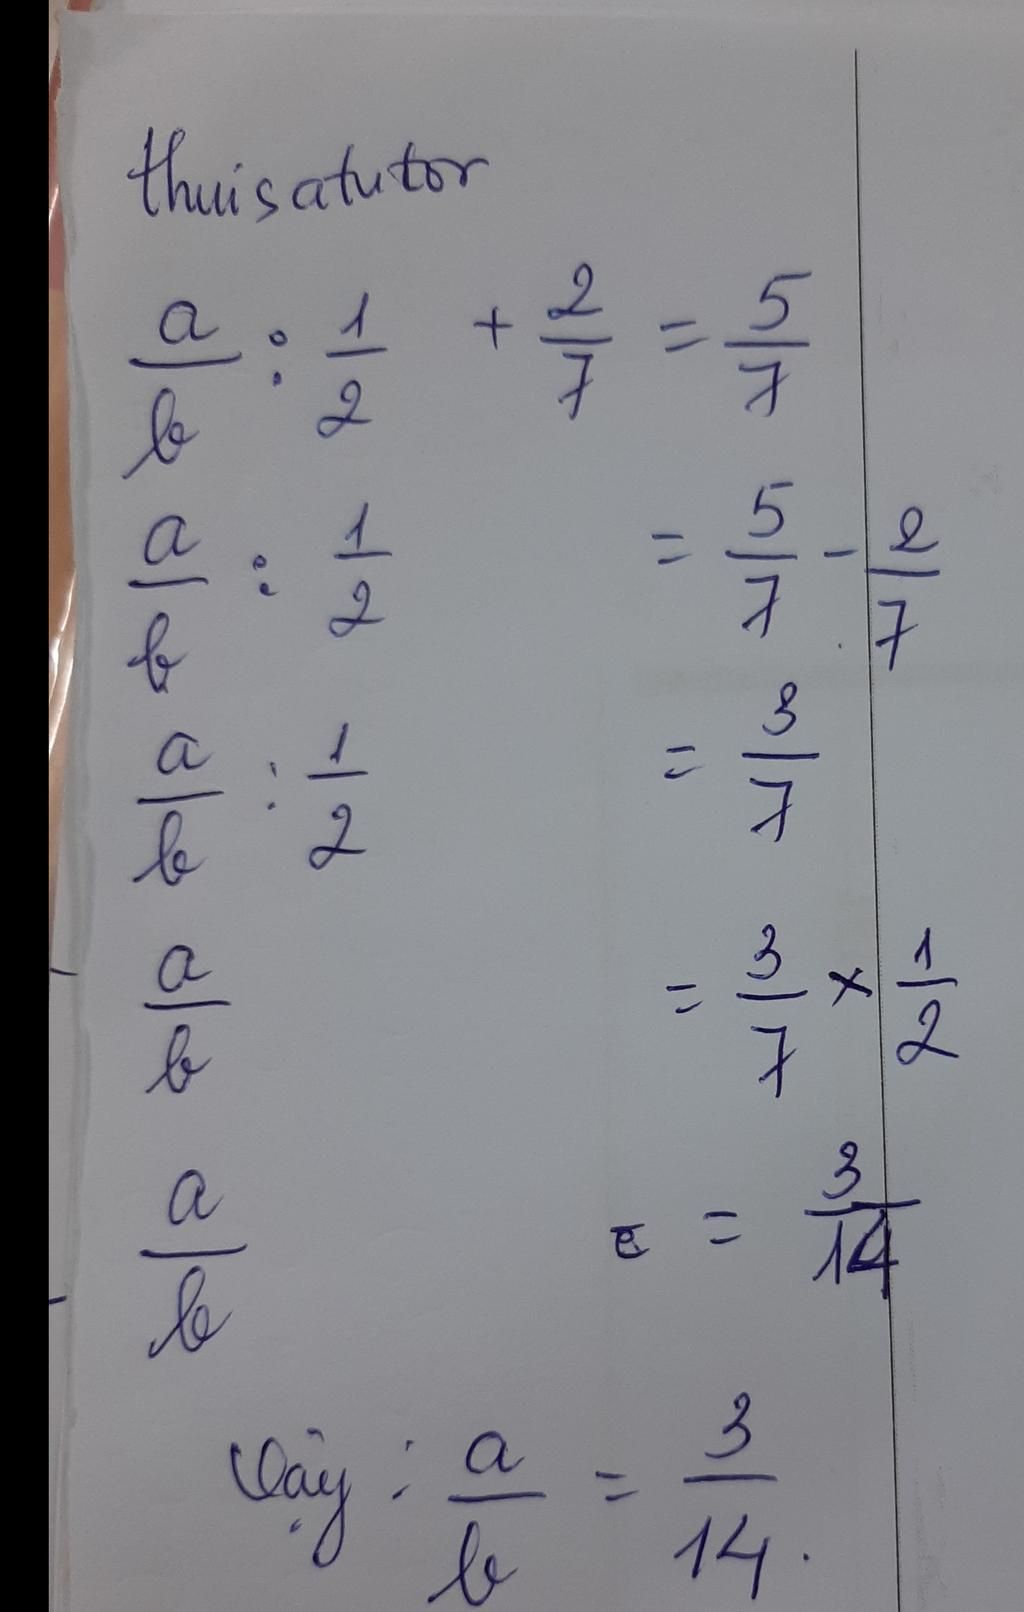 thuisatutor
a/b : 1/2 + 2/7 = 5/7
a/b : 1/2 = 5/7 - 2/7
a/b : 1/2 = 3/7
a/b = 3/7 × 1/2
a/b = 3/14
Vậy : a/b = 3/14.